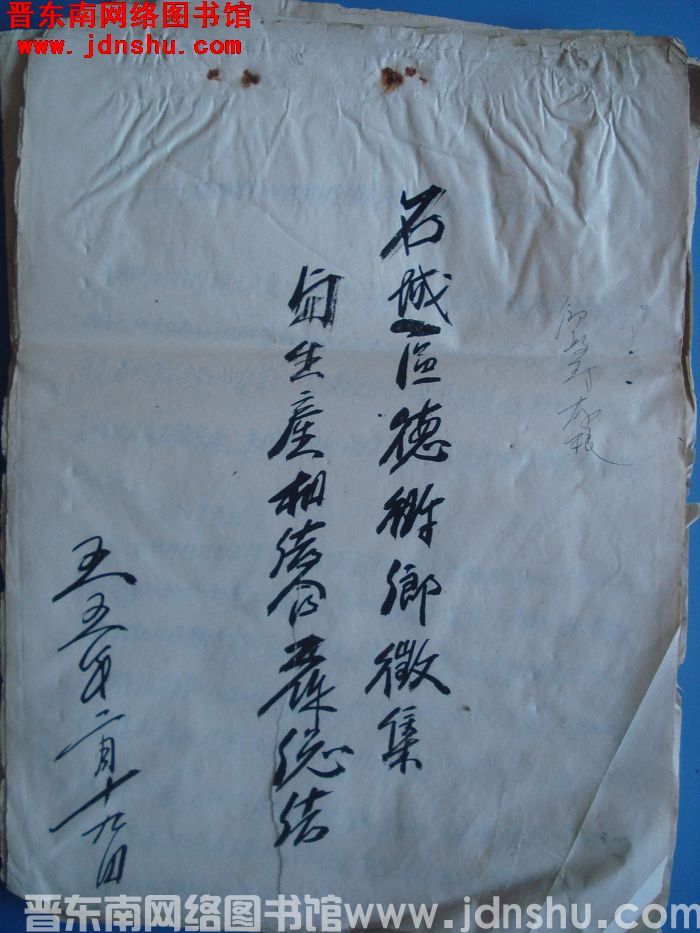 晋东南网络图书馆
www.jdnshu.com
石城区德鄉徵集
生產相结合工作總结
五五年二月十九日
晋东南网络图书馆www.jdnshu.com